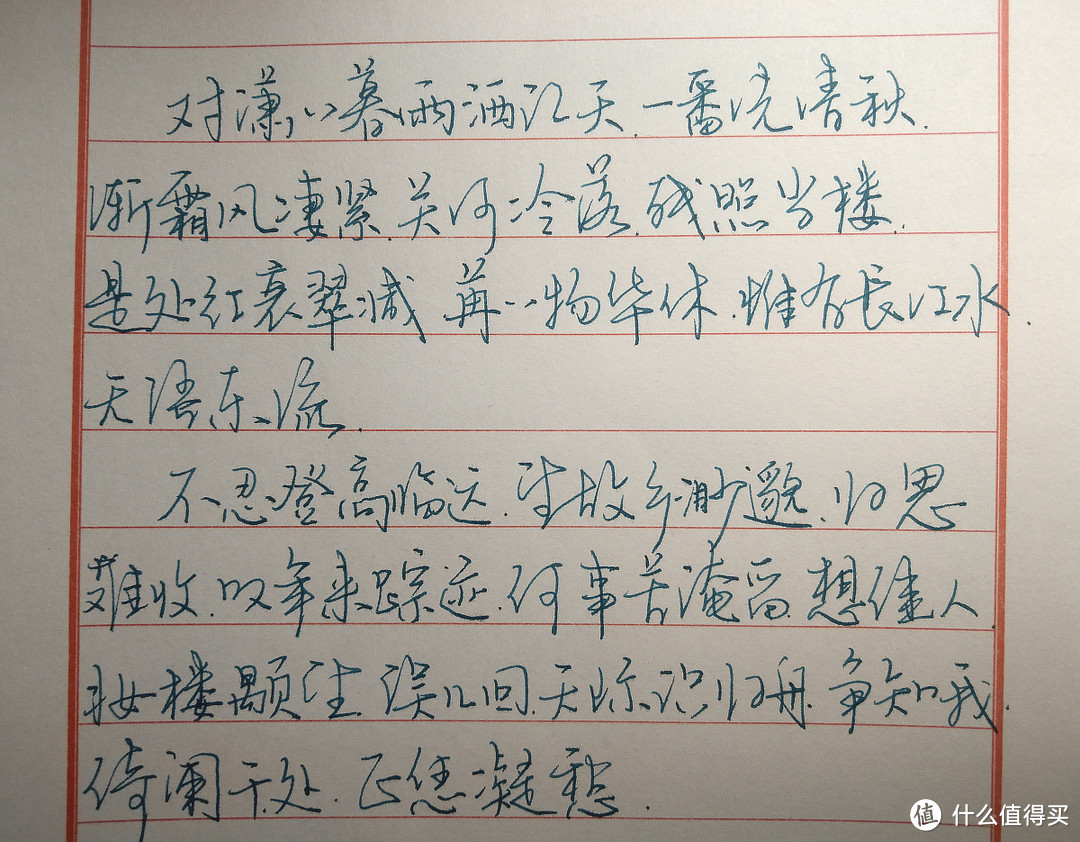 对潇潇暮雨洒江天.一番洗清秋.
渐霜风凄紧.关河冷落.残照当楼.
是处红衰翠减 苒苒物华休.惟有长江水.
无语东流.
不忍登高临远.望故乡渺邈.归思
难收.叹年来踪迹.何事苦淹留.想佳人
妆楼颙望.误几回.天际识归舟.争知我.
倚阑干处.正恁凝愁.
值 什么值得买